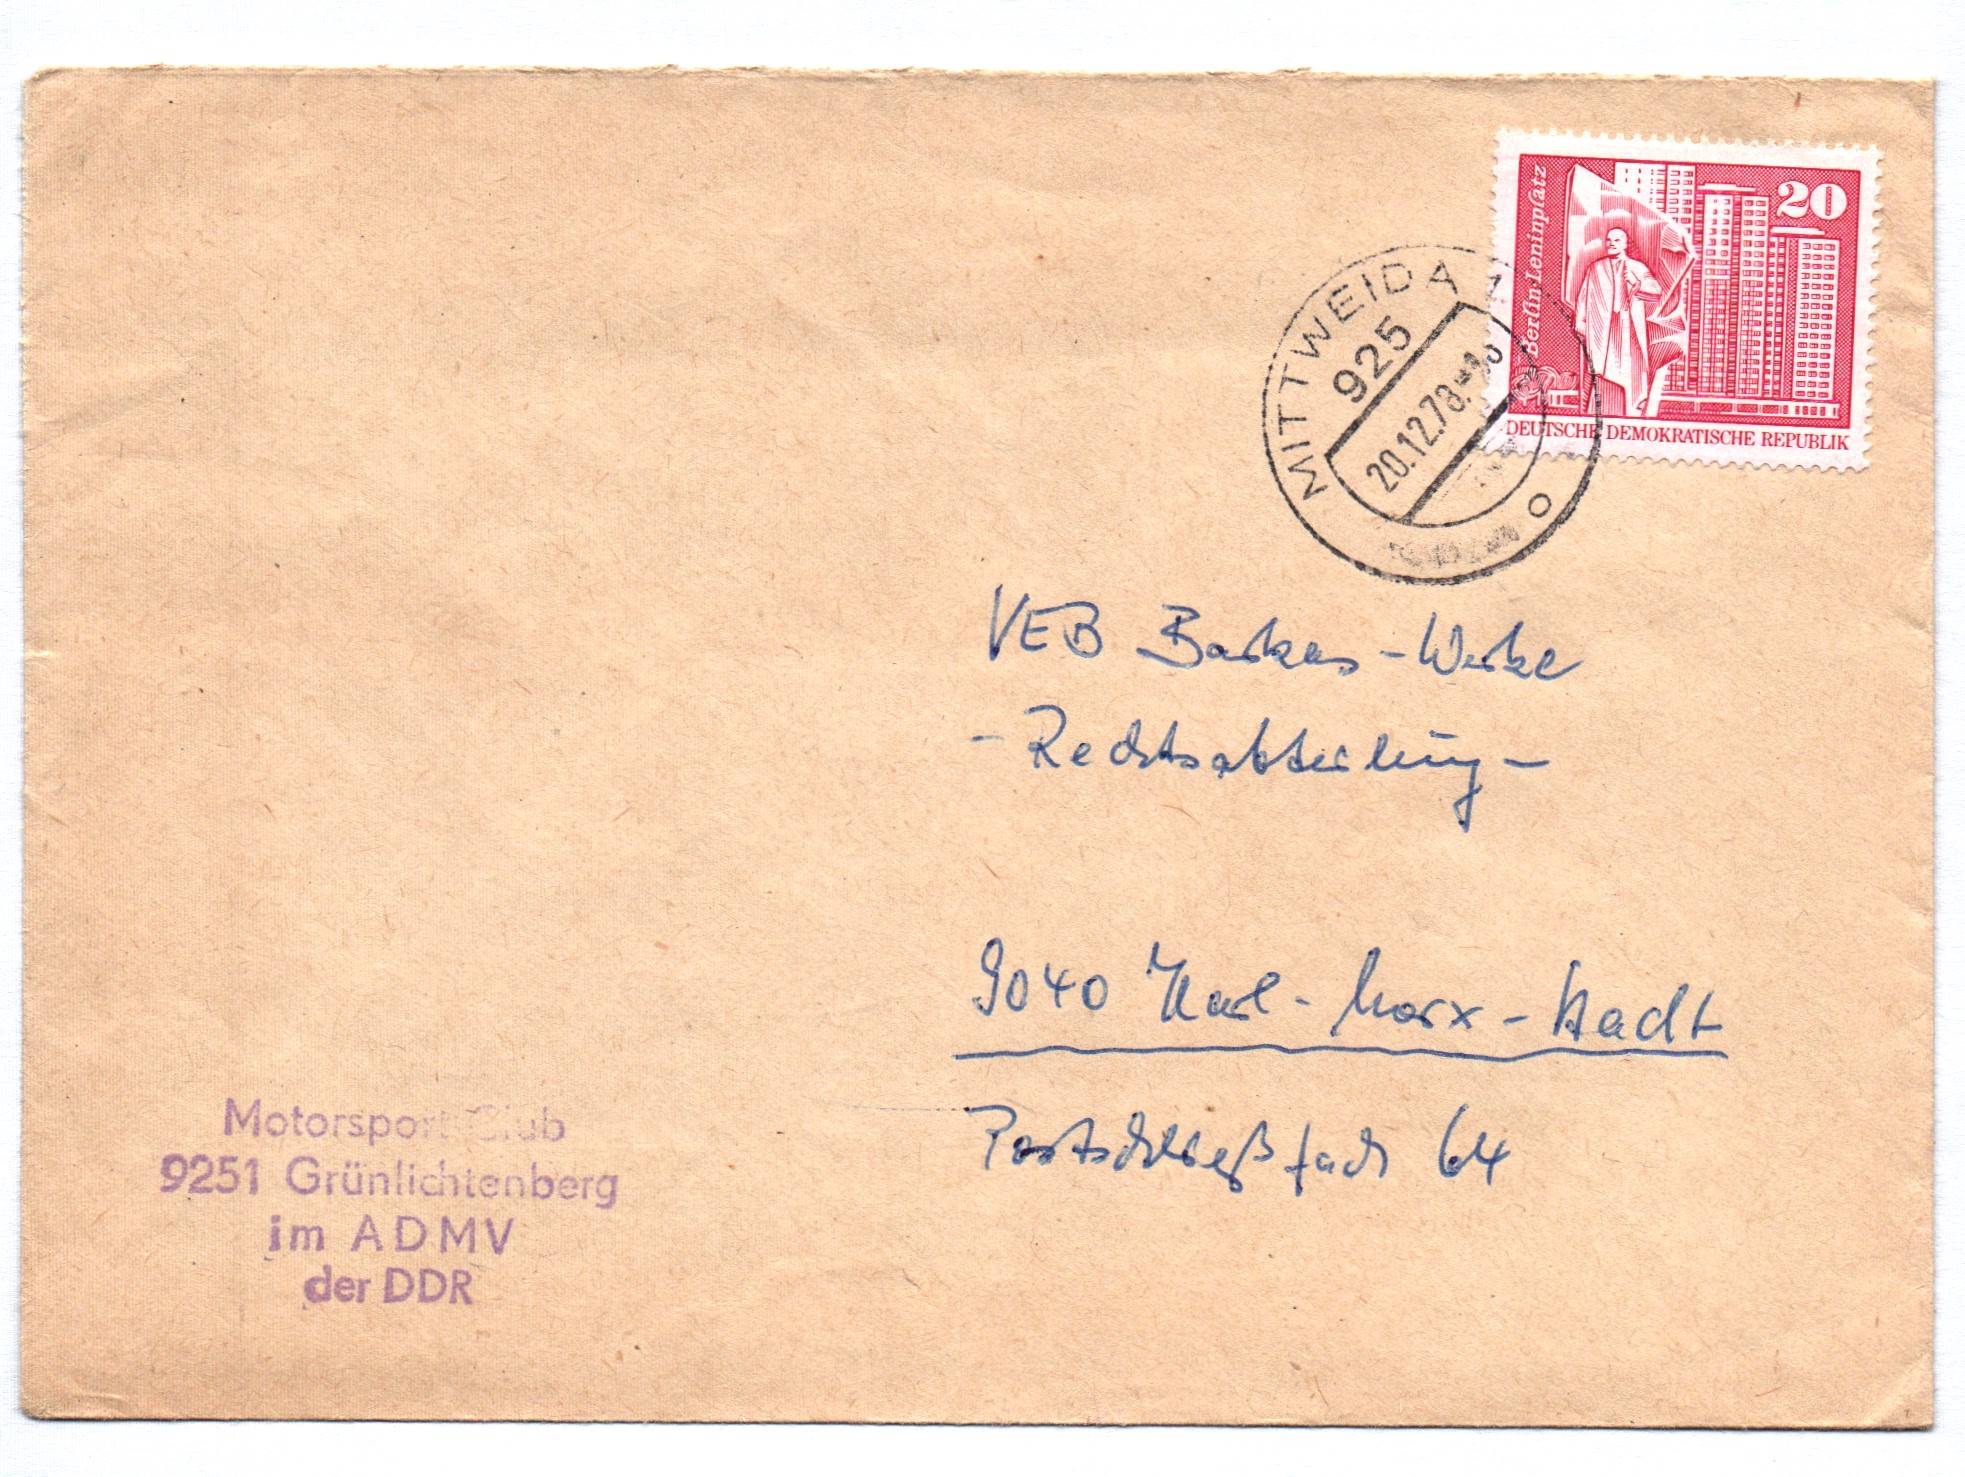 20
Berlin-Leninplatz
DEUTSCHE DEMOKRATISCHE REPUBLIK
MITTWEIDA 1
925
20.12.78
VEB Barkas-Werke
- Rechtsabteilung -
9040 Karl-Marx-Stadt
Postschließfach 64
Motorsport-Club
9251 Grünlichtenberg
im ADMV
der DDR